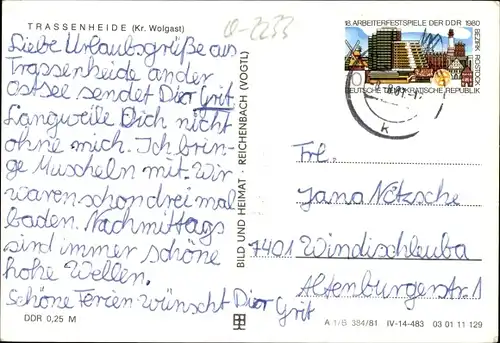 TRASSENHEIDE (Kr. Wolgast)
Q-2233
Liebe Urlaubsgrüße aus
Trassenheide an der
Ostsee sendet Dir Grit.
Langweile Dich nicht
ohne mich. Ich brin-
ge Muscheln mit. Wir
waren schon drei mal
baden. Nachmittags
sind immer schöne
hohe Wellen.
Schöne Ferien wünscht Dir
Grit
DDR 0,25 M
BILD UND HEIMAT · REICHENBACH (VOGTL)
18. ARBEITERFESTSPIELE DER DDR 1980
BEZIRK ROSTOCK
10
DEUTSCHE DEMOKRATISCHE REPUBLIK
k
Frl.
Jana Nötzsche
7401 Windischleuba
Altenburgerstr. 1
A 1/B 384/81 IV-14-483 03 01 11 129